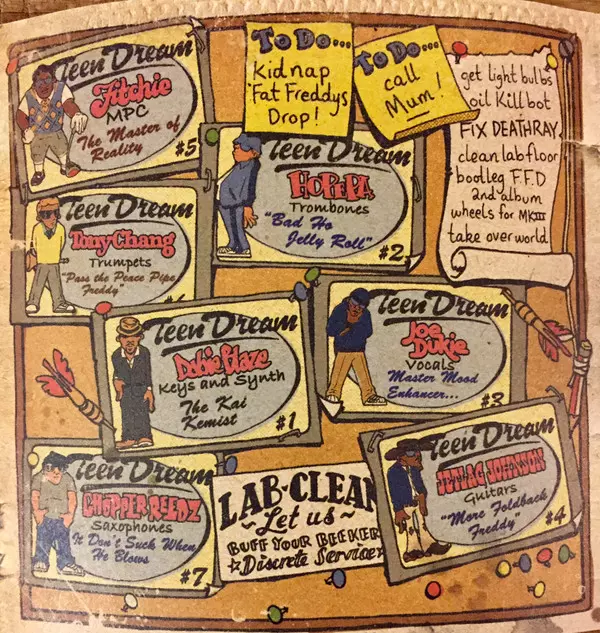 To Do...
Kidnap
'Fat Freddys
Drop!
To Do...
call
Mum!
get light bulbs
oil Killbot
FIX DEATHRAY
clean lab floor
bootleg F.F.D
2nd album
wheels for MKIII
take over world
Teen Dream
Fitchie
MPC
The Master of
Reality
#5
Teen Dream
HOPEPA
Trombones
"Bad Ho
Jelly Roll"
#2
Teen Dream
Tony Chang
Trumpets
"Pass the Peace Pipe
Freddy"
Teen Dream
Dobie Blaze
Keys and Synth
The Kai
Kemist
#1
Teen Dream
Joe
Dukie
Vocals
Master Mood
Enhancer...
#3
Teen Dream
CHOPPER REEDZ
Saxophones
It Don't Suck When
He Blows
#7
LAB-CLEAN
~Let us~
BUFF YOUR BEEKER
☆Discrete Service☆
Teen Dream
JETLAG JOHNSON
Guitars
"More Foldback
Freddy"
#4